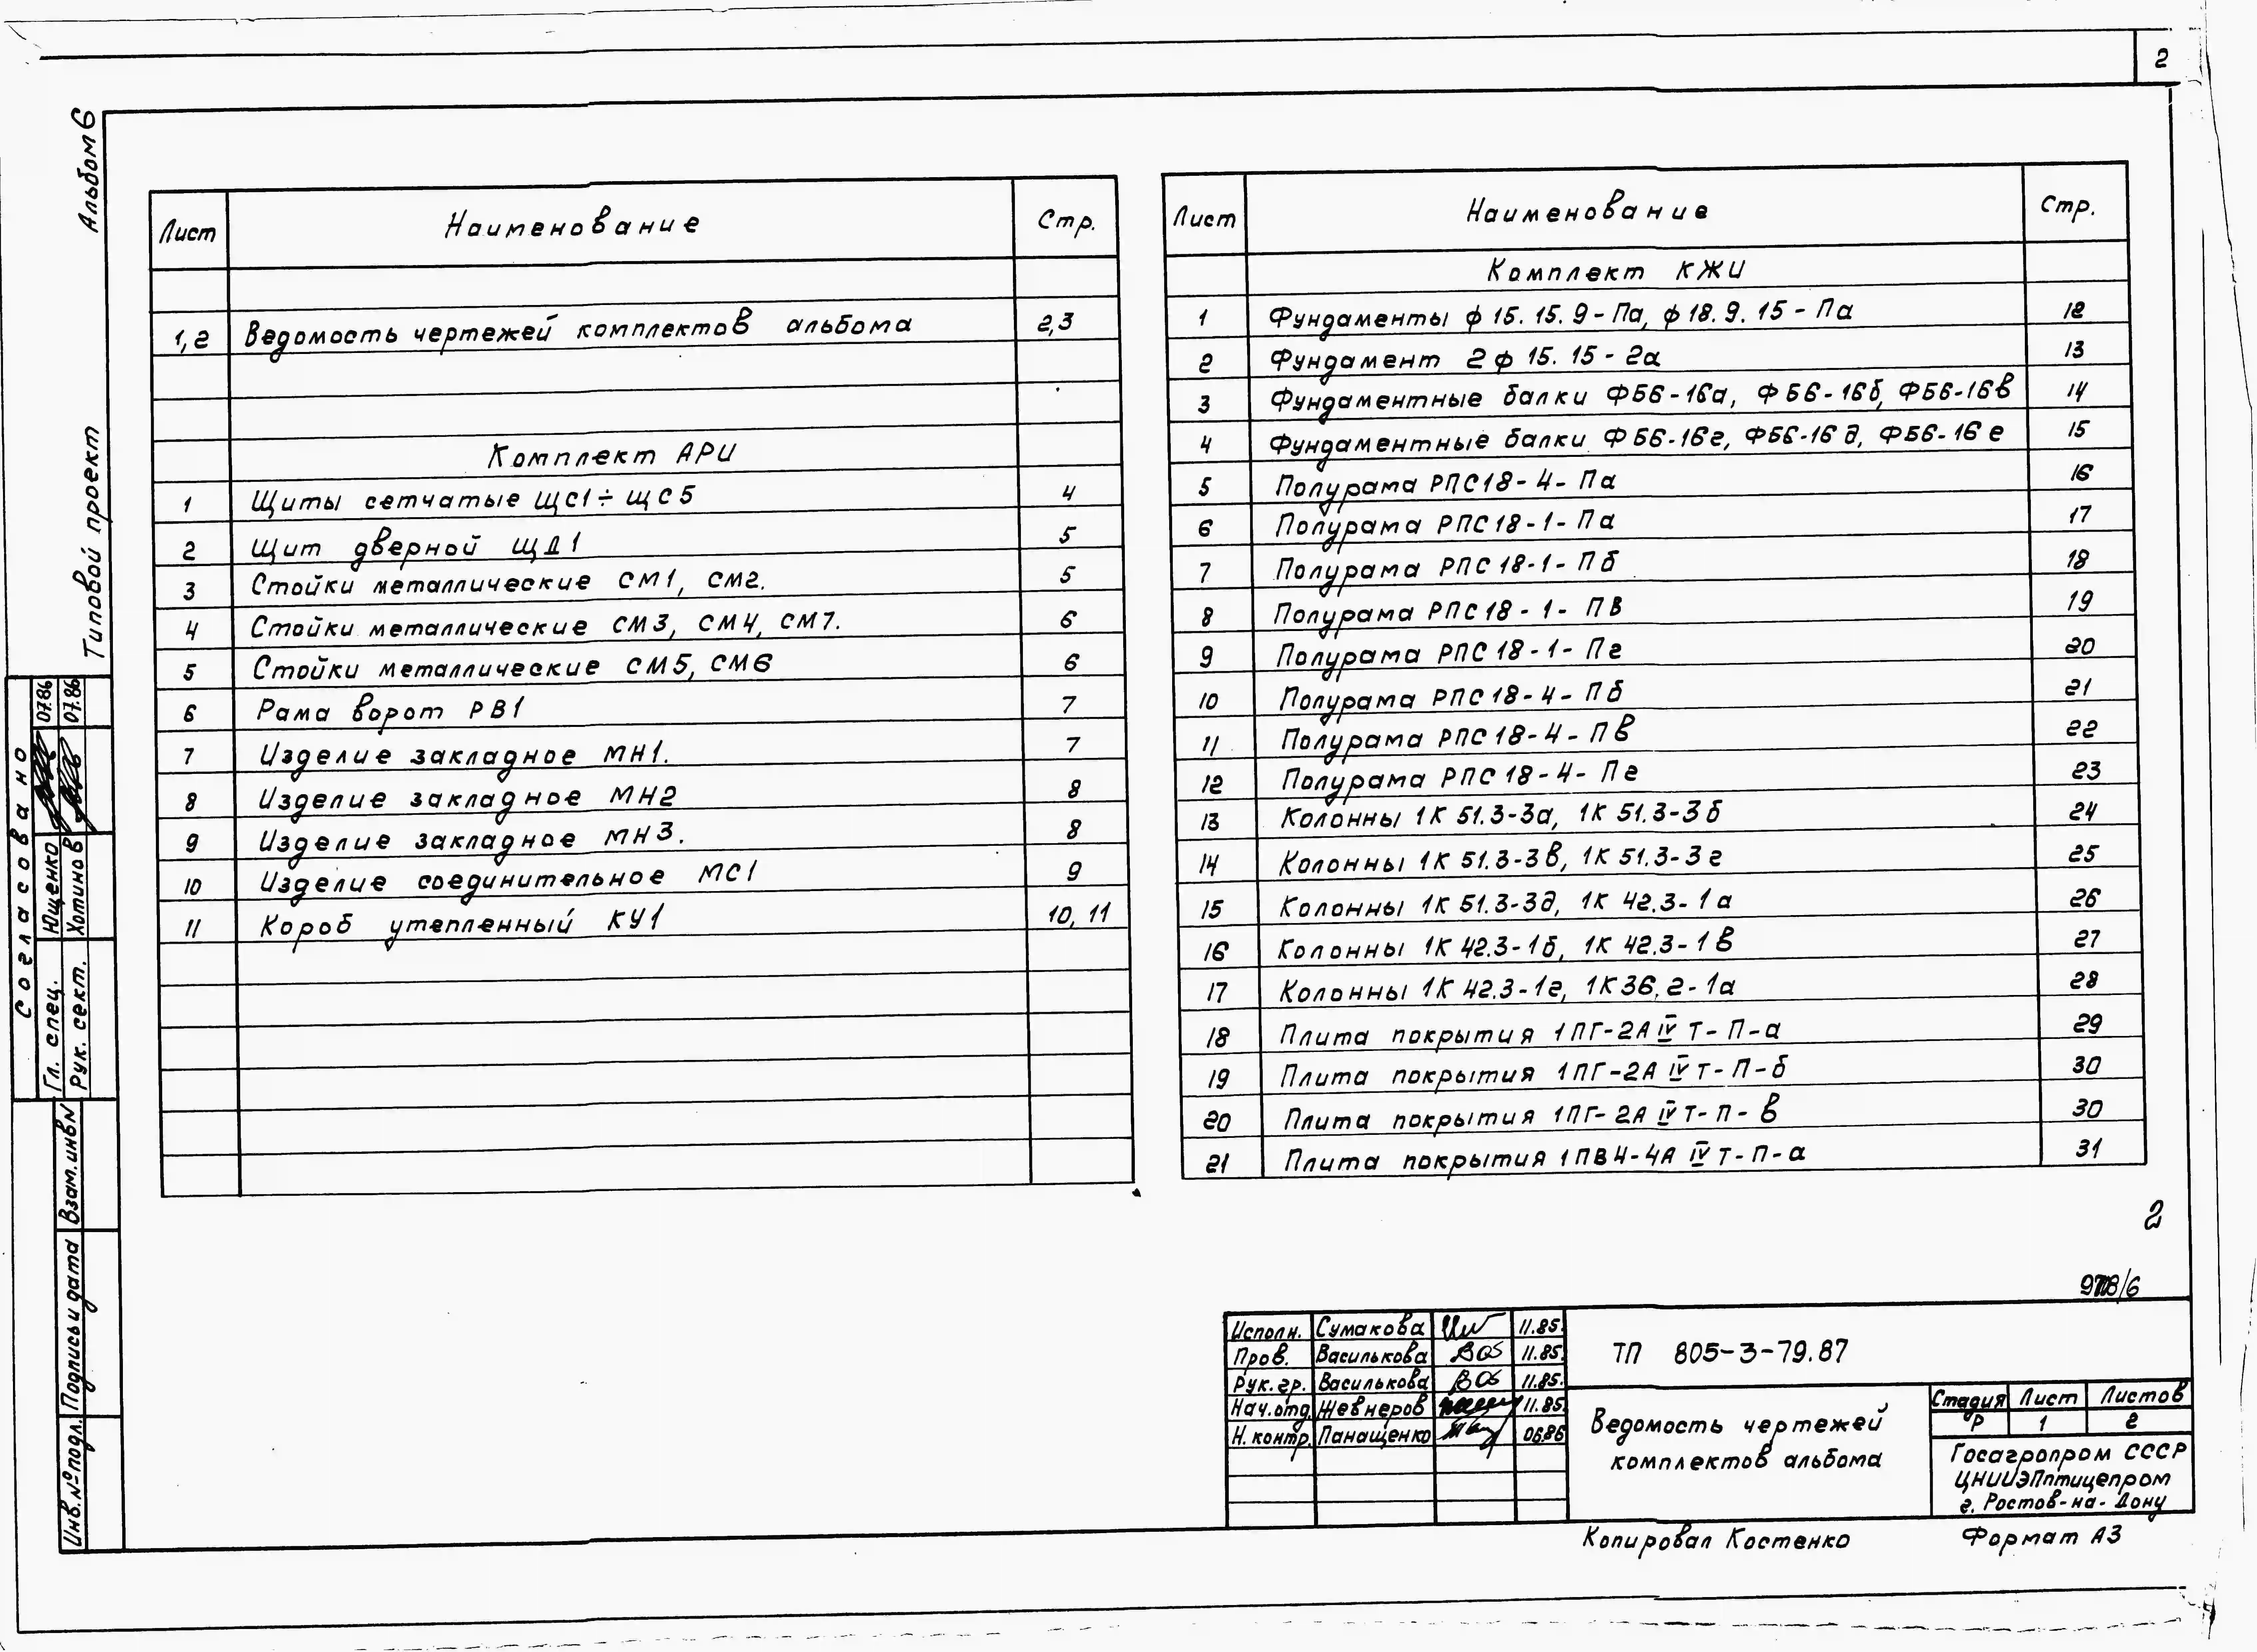 2
Альбом 6
Типовой проект
Лист Наименование Стр.
1,2 Ведомость чертежей комплектов альбома 2,3
Комплект АРИ
1 Щиты сетчатые ЩС1÷ЩС5 4
2 Щит дверной ЩД1 5
3 Стойки металлические СМ1, СМ2. 5
4 Стойки металлические СМ3, СМ4, СМ7. 6
5 Стойки металлические СМ5, СМ6 6
6 Рама ворот РВ1 7
7 Изделие закладное МН1. 7
8 Изделие закладное МН2 8
9 Изделие закладное МН3. 8
10 Изделие соединительное МС1 9
11 Короб утепленный КУ1 10, 11
Лист Наименование Стр.
Комплект КЖИ
1 Фундаменты ф 15.15.9-Па, ф 18.9.15-Па 12
2 Фундамент 2ф 15.15-2а 13
3 Фундаментные балки ФБ6-16а, ФБ6-16б, ФБ6-16в 14
4 Фундаментные балки ФБ6-16г, ФБ6-16д, ФБ6-16е 15
5 Полурама РПС18-4-Па 16
6 Полурама РПС18-1-Па 17
7 Полурама РПС18-1-Пб 18
8 Полурама РПС18-1-ПВ 19
9 Полурама РПС18-1-Пг 20
10 Полурама РПС18-4-Пб 21
11 Полурама РПС18-4-Пв 22
12 Полурама РПС18-4-Пг 23
13 Колонны 1К 51.3-3а, 1К 51.3-3б 24
14 Колонны 1К 51.3-3в, 1К 51.3-3г 25
15 Колонны 1К 51.3-3д, 1К 42.3-1а 26
16 Колонны 1К 42.3-1б, 1К 42.3-1в 27
17 Колонны 1К 42.3-1г, 1К36.2-1а 28
18 Плита покрытия 1ПГ-2АIVТ-П-а 29
19 Плита покрытия 1ПГ-2АIVТ-П-б 30
20 Плита покрытия 1ПГ-2АIVТ-П-в 30
21 Плита покрытия 1ПВ4-4АIVТ-П-а 31
Согласовано
Гл. спец. Ющенко 07.86
Рук. сект. Хотинов 07.86
Взам.инв№
Подпись и дата
Инв.№подл.
2
Исполн. Сумакова 11.85.
Пров. Василькова 11.85.
Рук.гр. Василькова 11.85.
Нач.отд. Жевнеров 11.85.
Н.контр. Панащенко 06.86
ТП 805-3-79.87
Ведомость чертежей
комплектов альбома
Стадия Лист Листов
Р 1 2
Госагропром СССР
ЦНИИЭПптицепром
г. Ростов-на-Дону
Копировал Костенко Формат А3